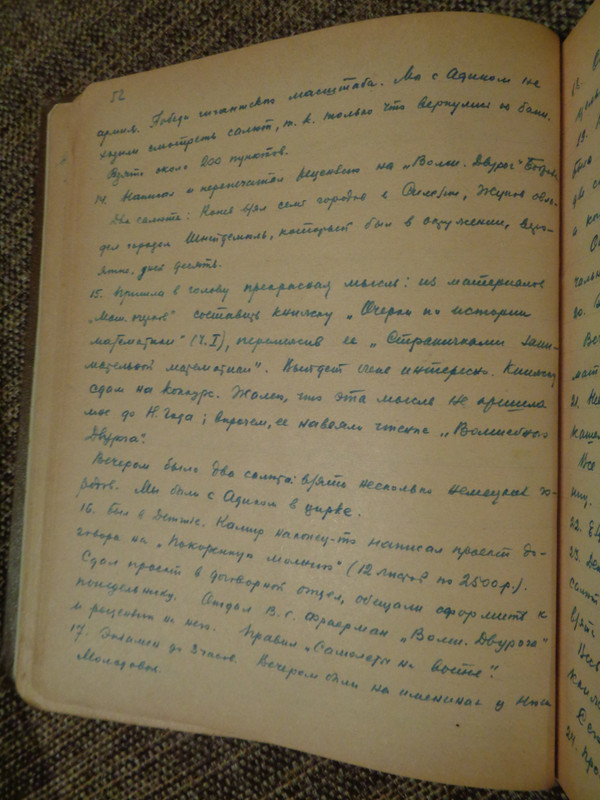 52
армия. Победа гигантского масштаба. Мы с Адиком не
ходили смотреть салют, т. к. только что вернулись из бани.
Взято около 200 пунктов.
14. Написал и перепечатал рецензию на „Волш. Двурог“
Два салюта: Конев взял семь городов в Силезии, Жуков овла-
дел городом который был в окружении, веро-
ятно, дней десять.
15. Пришла в голову прекрасная мысль: из материалов
„Мат. “ составить книжку „Очерки по истории
математики“ (Ч. I), перемежив ее „Страничками зани-
мательной математики“. Выйдет очень интересно. Книжку
сдам на конкурс. Жалею, что эта мысль не пришла
мне до Н. Года; впрочем, ее навеяло чтение „Волшебного
Двурога“.
Вечером было два салюта: взято несколько немецких го-
родов. Мы были с Адиком в цирке.
16. Был в Детгизе. наконец-то написал проект до-
говора на „Покоренную молнию“ (12 листов по 2500 р.).
Сдал проект в договорной отдел, обещали оформить к
понедельнику. Отдал В. Г. Фраерман „Волш. Двурога“
и рецензию на него. Правил „Самолеты на войне“.
17. Экзамен до 3 часов. Вечером были на именинах у
Молодовых.
12.
19.
было
21.
22.
23.
24.